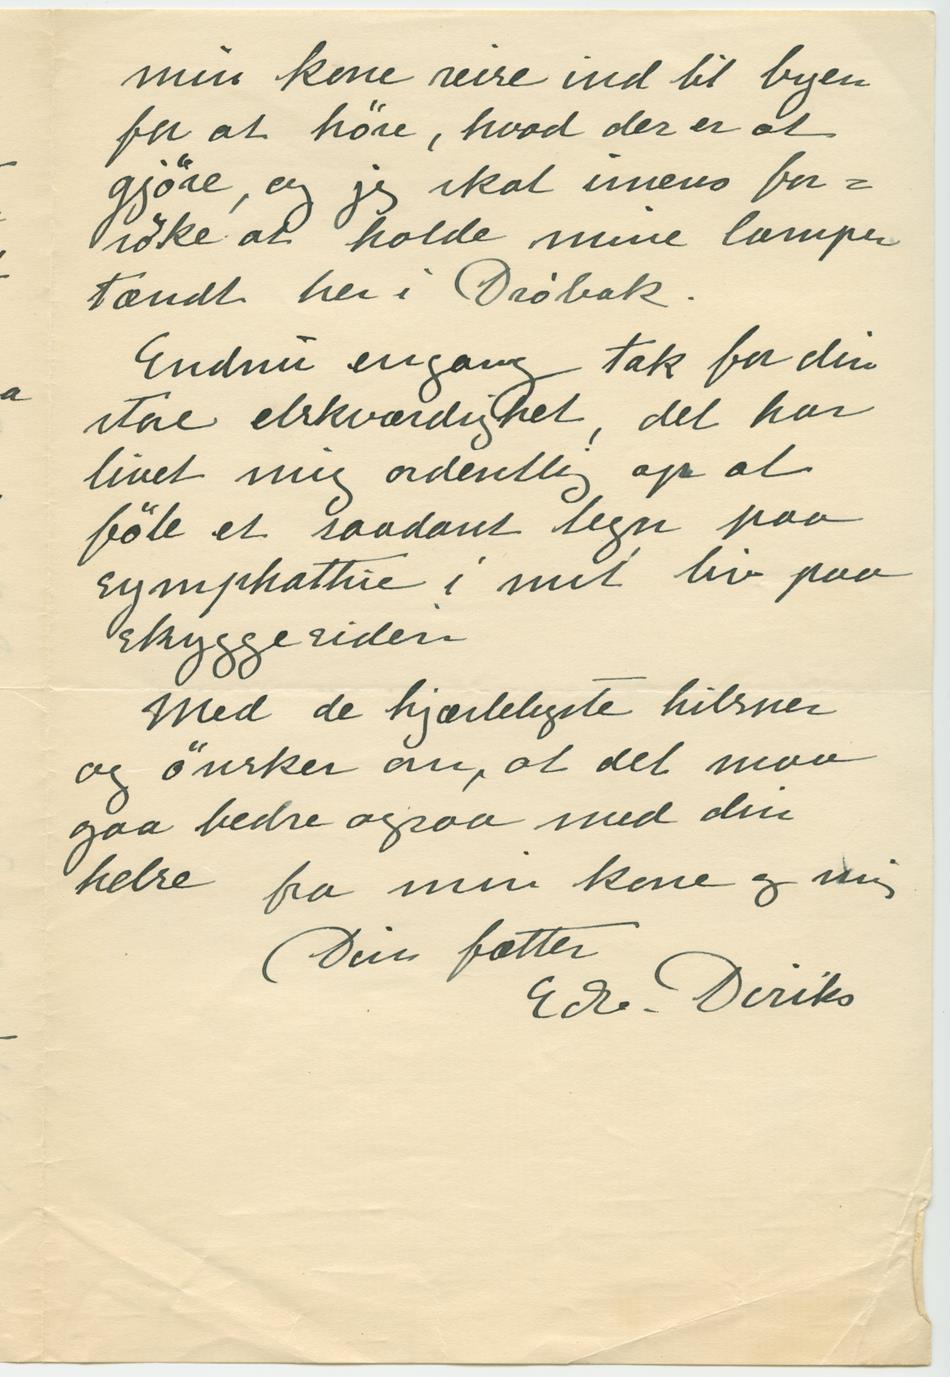 min kone reise ind til byen
for at höre, hvad der er at
gjöre, og jeg skal imens for=
söke at holde mine lamper
tændt her i Dröbak.
Endnu engang tak for din
store elskværdighet, det har
livet mig ordentlig op at
föle et saadant tegn paa
symphathie i mit liv paa
skyggesiden
Med de hjærteligste hilsner
og önsker om, at det maa
gaa bedre ogsaa med din
helse fra min kone og mig
Din fætter
Edv. Diriks